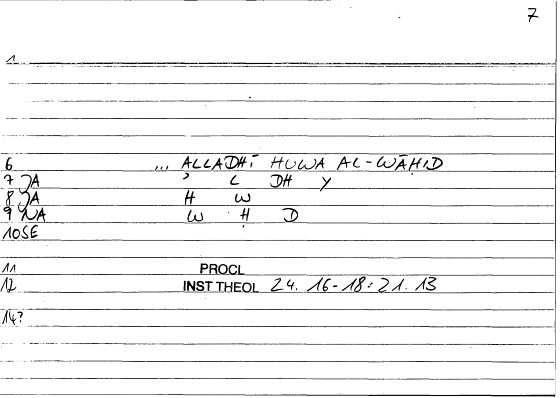 7
1
6 ... ALLADHĪ HUWA AL-WĀḤID
7 JA ʾ L DH Y
8 JA H W
9 NA W Ḥ D
10SE
11 PROCL
12 INST THEOL 24. 16-18: 21. 13
14?